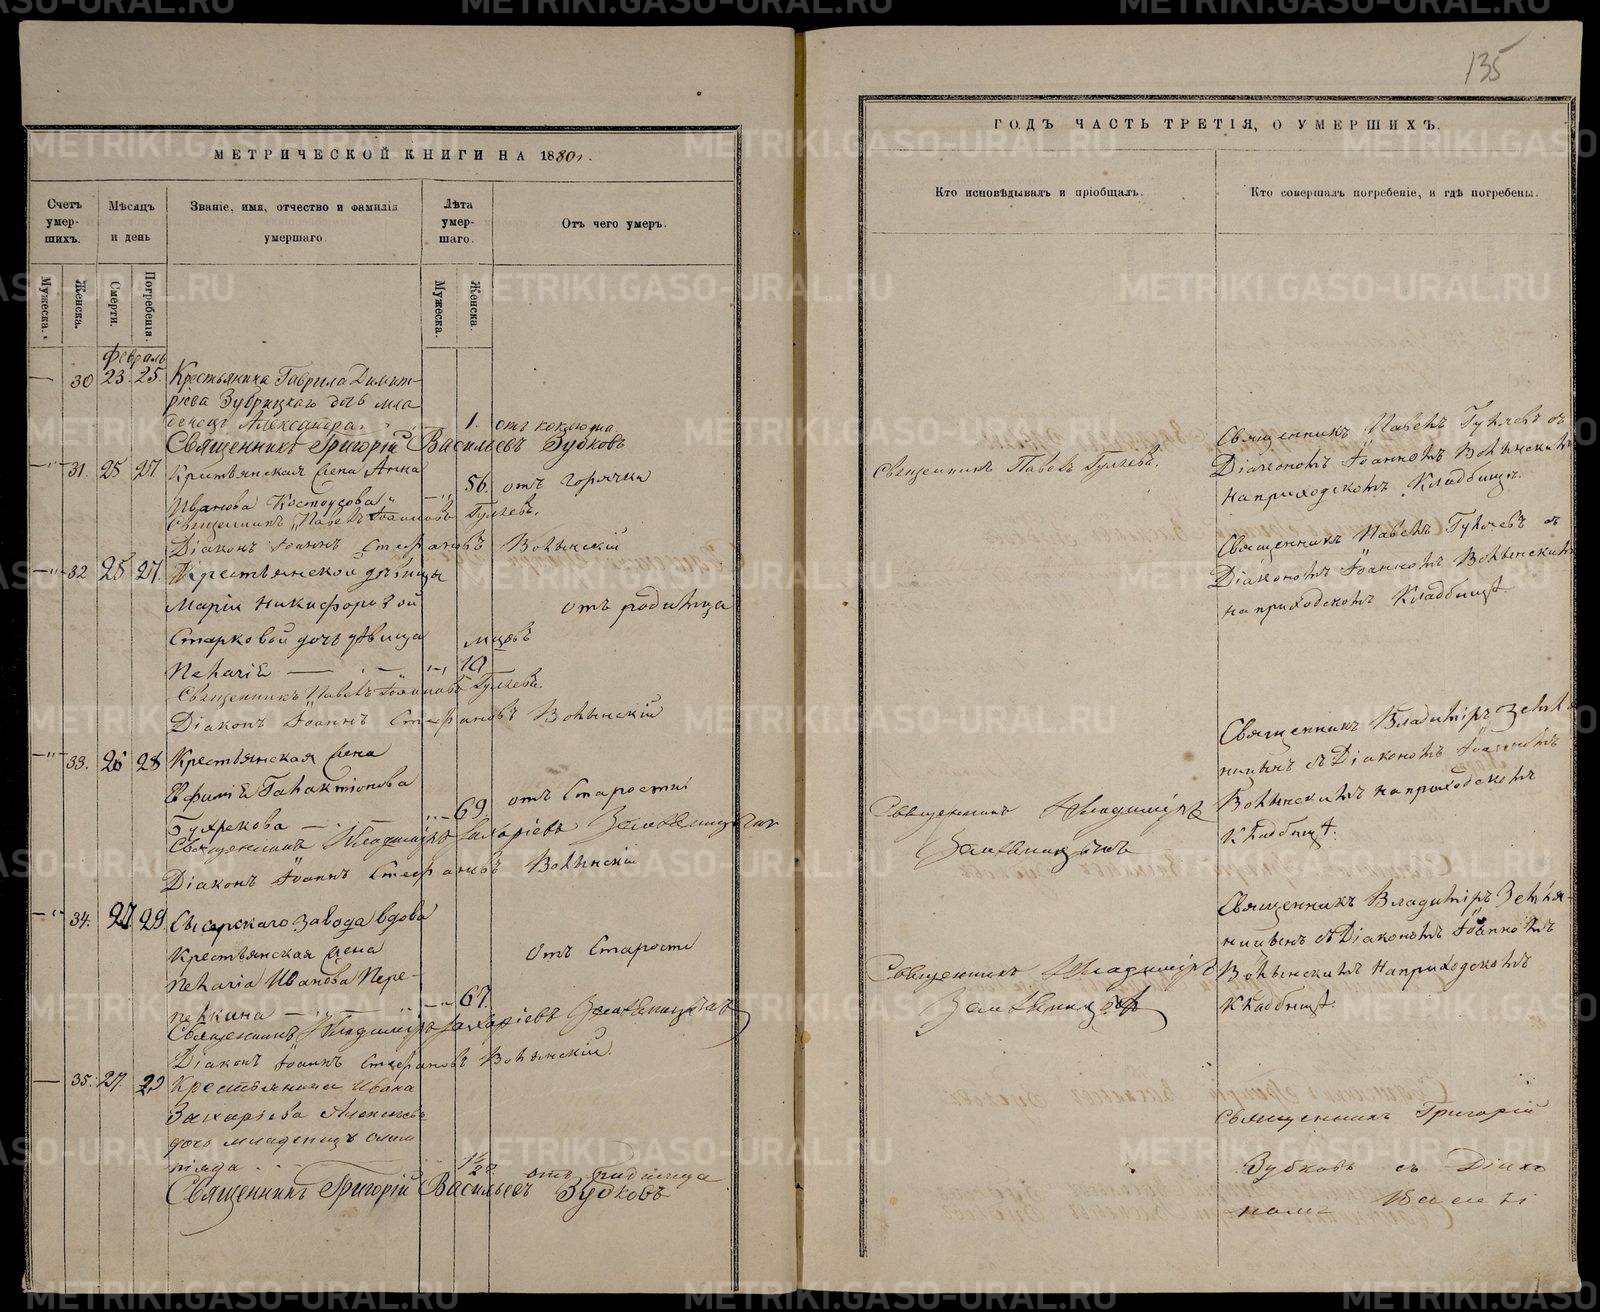 135
МЕТРИЧЕСКОЙ КНИГИ НА 1880 г.
Счетъ умер-шихъ.
Мѣсяцъ и день
Званіе, имя, отчество и фамилія умершаго.
Лѣта умер-шаго.
Отъ чего умеръ.
Мужеска.
Женска.
Смерти.
Погребенія.
Мужеска.
Женска.
Февраль
30 23. 25. Крестьянина Гаврила Димит-
ріева Зубрицкаго дочь мла
денецъ Александра 1. отъ коклюша
Священникъ Григорій Васильевъ Зубковъ
31. 25 27. Крестьянская жена Анна
Иванова Костоусова 56. отъ горячки
Священникъ Павелъ Іоанновъ Гуляевъ.
Діаконъ Іоаннъ Стефановъ Волынскій
32 25 27. Крестьянской дѣвицы
Маріи Никифоровой отъ родимца
Старковой дочь дѣвица мцовъ
Пелагія 10
Священникъ Павелъ Іоанновъ Гуляевъ.
Діаконъ Іоаннъ Стефановъ Волынскій
33. 26 28 Крестьянская жена
Евфимія Галактіонова отъ Старости
69.
Священникъ Владиміръ Захаріевъ Земляницынъ
Діаконъ Іоаннъ Стефановъ Волынскій
34. 27 29 Сысерскаго завода вдова
Крестьянская жена отъ Старости
Пелагія Иванова Пере-
пелкина 67.
Священникъ Владиміръ Захаріевъ Земляницынъ
Діаконъ Іоаннъ Стефановъ Волынскій.
35. 27. 29 Крестьянина Ивана
Захаріева
дочь младенецъ Олим
піада 1/2 г. отъ родимца
Священникъ Григорій Васильевъ Зубковъ
ГОДЪ ЧАСТЬ ТРЕТІЯ, О УМЕРШИХЪ.
Кто исповѣдывалъ и пріобщалъ.
Кто совершалъ погребеніе, и гдѣ погребены.
Священникъ Павелъ Гуляевъ съ
Священникъ Павелъ Гуляевъ.
Діакономъ Іоанномъ Волынскимъ
на приходскомъ Кладбищѣ.
Священникъ Павелъ Гуляевъ съ
Діакономъ Іоанномъ Волынскимъ
на приходскомъ Кладбищѣ
Священникъ Владиміръ Земля
ницынъ съ Діакономъ Іоанномъ
Священникъ Владиміръ
Волынскимъ на приходскомъ
Земляницынъ
Кладбищѣ.
Священникъ Владиміръ Земля-
ницынъ съ Діакономъ Іоанномъ
Священникъ Владиміръ
Волынскимъ на приходскомъ
Земляницынъ
Кладбищѣ.
Священникъ Григорій
Зубковъ съ Діако
номъ
METRIKI.GASO-URAL.RU